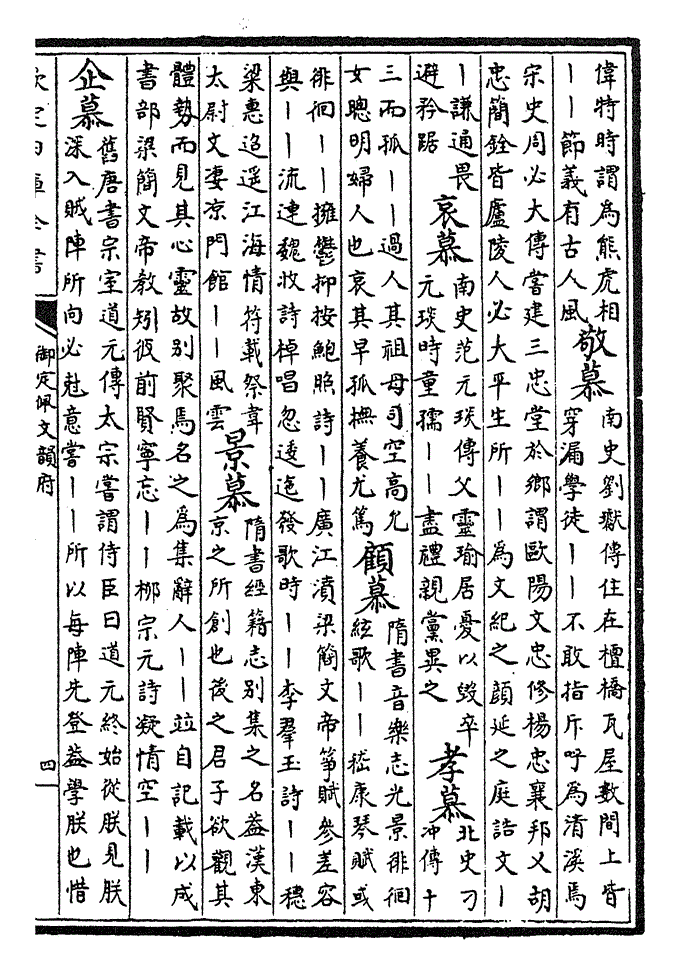 偉特時謂為熊虎相
丨丨節義有古人風
敬慕
南史劉獄傳住在檀橋瓦屋數間上皆
穿漏學徒丨丨不敢指斥呼為清溪焉
宋史周必大傳嘗建三忠堂於鄉謂歐陽文忠修楊忠襄邦乂胡
忠簡銓皆廬陵人必大平生所丨丨為文紀之顔延之庭誥文丨
丨謙通畏
避矜踞
哀慕
南史范元琰傳父靈瑜居憂以毁卒
元琰時童孺丨丨盡禮親黨異之
孝慕
北史刁
冲傳十
三而孤丨丨過人其祖母司空高允
女聰明婦人也哀其早孤撫養尤篤
顧慕
隋書音樂志光景徘徊
絃歌丨丨嵇康琴賦或
徘徊丨丨擁鬱抑按鮑照詩丨丨廣江濆梁簡文帝箏賦參差容
與丨丨流連魏收詩棹唱忽逶迤發歌時丨丨李羣玉詩丨丨穗
梁惠迢遥江海情符載祭韋
太尉文妻凉門館丨丨風雲
景慕
隋書經籍志別集之名葢漢東
京之所創也後之君子欲觀其
體勢而見其心靈故別聚焉名之為集辭人丨丨竝自記載以成
書部梁簡文帝教矧彼前賢寧忘丨丨栁宗元詩凝情空丨丨
企慕
舊唐書宗室道元傳太宗嘗謂侍臣曰道元終始從朕見朕
深入賊陣所向必尅意嘗丨丨所以每陣先登葢學朕也惜
欽定四庫全書
御定佩文韻府
四